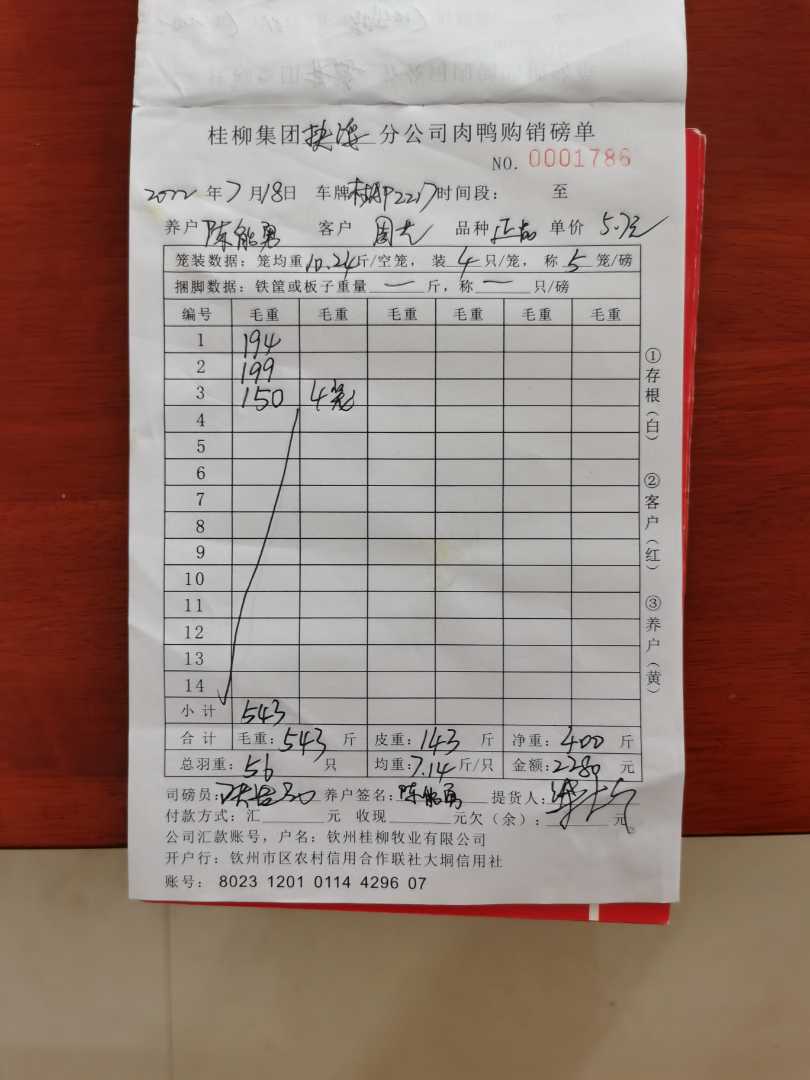 桂柳集团 分公司肉鸭购销磅单
NO. 0001786
2022年7月18日 车牌 2217 时间段： 至
养户 陈能勇 客户 周大 品种 正品 单价 5.7元
笼装数据：笼均重 10.24 斤/空笼，装 4 只/笼，称 5 笼/磅
捆脚数据：铁筐或板子重量 一 斤，称 一 只/磅
编号 毛重 毛重 毛重 毛重 毛重 毛重
1 194
2 199
3 150 4笼
4
5
6
7
8
9
10
11
12
13
14
小计 543
合计 毛重：543 斤 皮重：143 斤 净重：400 斤
总羽重：56 只 均重：7.14 斤/只 金额：2280 元
司磅员： 养户签名：陈能勇 提货人：
付款方式：汇 元 收现 元欠（余）： 元。
公司汇款账号，户名：钦州桂柳牧业有限公司
开户行：钦州市区农村信用合作联社大垌信用社
账号：8023 1201 0114 4296 07
①存根（白）
②客户（红）
③养户（黄）